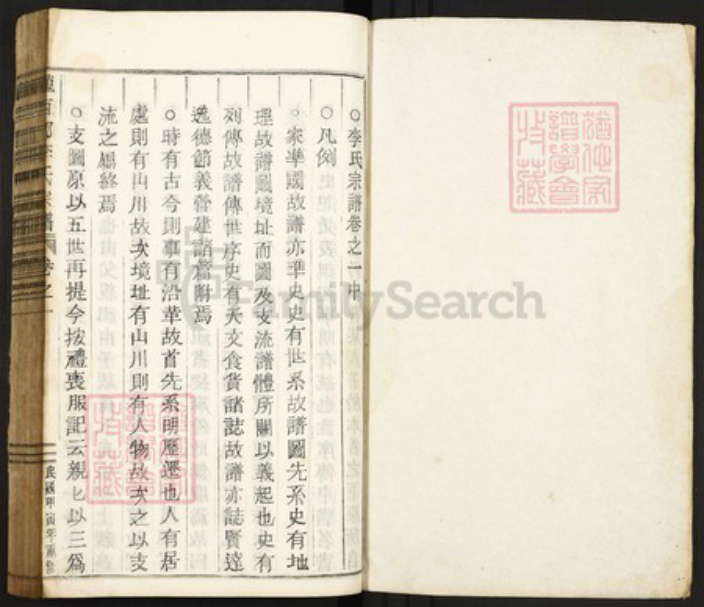 李氏宗譜卷之一中
○凡例
○家準國故譜亦準史史有世系故譜圖先系史有地
理故譜圖境址而圖及支流譜體所關以義起也史有
列傳故譜傳世序史有天文食貨諸誌故譜亦誌賢達
逸德節義營建諸篇附焉
○時有古今則事有沿革故首先系明歷遷也人有居
處則有山川故次境址有山川則有人物故次之以支
流之屬終焉
○支圖原以五世再提今按禮喪服記云親七以三爲
李氏宗譜 卷之一
民國甲寅年
FamilySearch